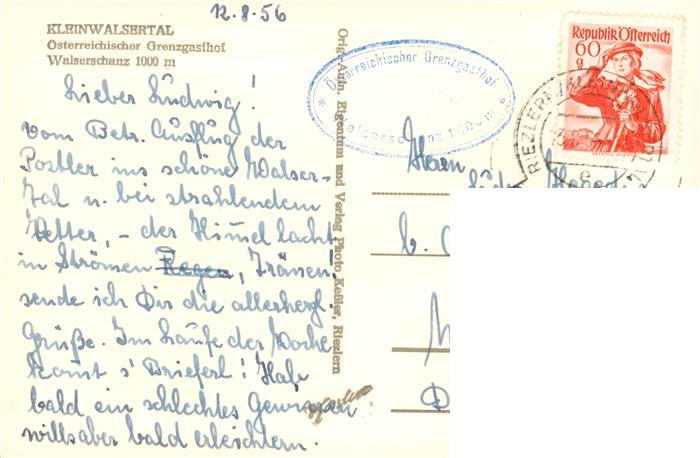 12.8.56
KLEINWALSERTAL
Österreichischer Grenzgasthof
Walserschanz 1000 m
Lieber Ludwig!
vom Betr. Ausflug der
Postler ins schöne Walser-
tal u. bei strahlendem
Wetter, – der Himel lacht
in Strömen Regen, Tränen!
sende ich Dir die allerherzl.
Grüße. Im Laufe der Woche
komt s' Brieferl! Hab
bald ein schlechtes Gewissen
wills aber bald erleichtern.
Orig.-Aufn. Eigentum und Verlag Photo Keßler, Riezlern
Österreichischer Grenzgasthof
Walserschanz 1000 m
Republik Österreich
60
g
RIEZLERN
e
Herrn
b.